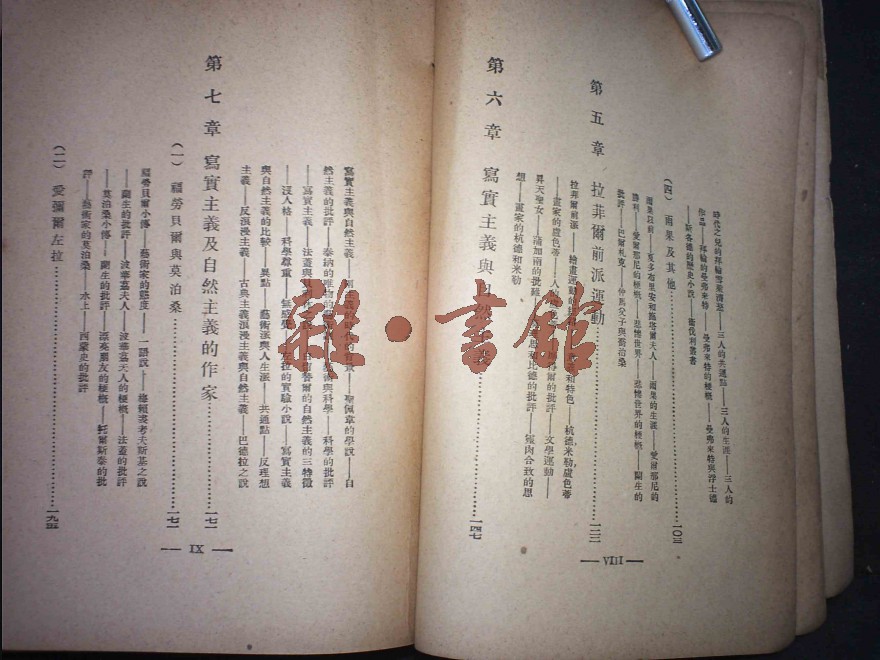 時代之兒的拜輪雪萊濟慈——三人的共通點——三人的生涯——三人的
作品——拜輪的曼弗來特——曼弗來特的梗概——曼弗來特與浮士德
——斯各德的歷史小說——衛伐利叢書
（四）雨果及其他……一〇三
雨果以前——夏多布里安和施塔爾夫人——雨果的生涯——愛爾那尼的
勝利——愛爾那尼的梗概——悲慘世界——悲慘世界的梗概——蘭生的
批評——巴爾札克——仲馬父子與喬治桑
第五章 拉菲爾前派運動……一三二
拉菲爾前派——繪畫運動的 和特色——杭德，米勒，盧色蒂
——畫家的盧色蒂——人 的批評——文學運動——
昇天聖女——浦加南的批難 的批評——靈肉合致的思
想——畫家的杭德和米勒
第六章 寫實主義與自然主義……一四七
VIII
寫實主義與自然主義 聖佩韋的學說——自
然主義的批評——泰納的唯物的 與科學——科學的批評
——寫實主義——法蓋與 的自然主義的三特徵
——沒人格——科學尊重——無感覺——左拉的實驗小說——寫實主義
與自然主義的比較——異點——藝術派與人生派——共通點——反理想
主義——反浪漫主義——古典主義浪漫主義與自然主義——巴德拉之說
第七章 寫實主義及自然主義的作家……一七二
（一）福勞貝爾與莫泊桑……一七二
福勞貝爾小傳——藝術家的態度——一語說——梅賴裘考夫斯基之說
——蘭生的批評——波華荔夫人——波華荔夫人的梗概——法蓋的批評
——莫泊桑小傳——蘭生的批評——漂亮朋友的梗概——托爾斯泰的批
評——藝術家的莫泊桑——水上——西蒙史的批評
（二）愛彌爾左拉……一九五
IX
雜·書館